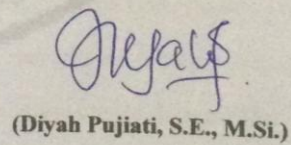 (Diyah Pujiati, S.E., M.Si.)